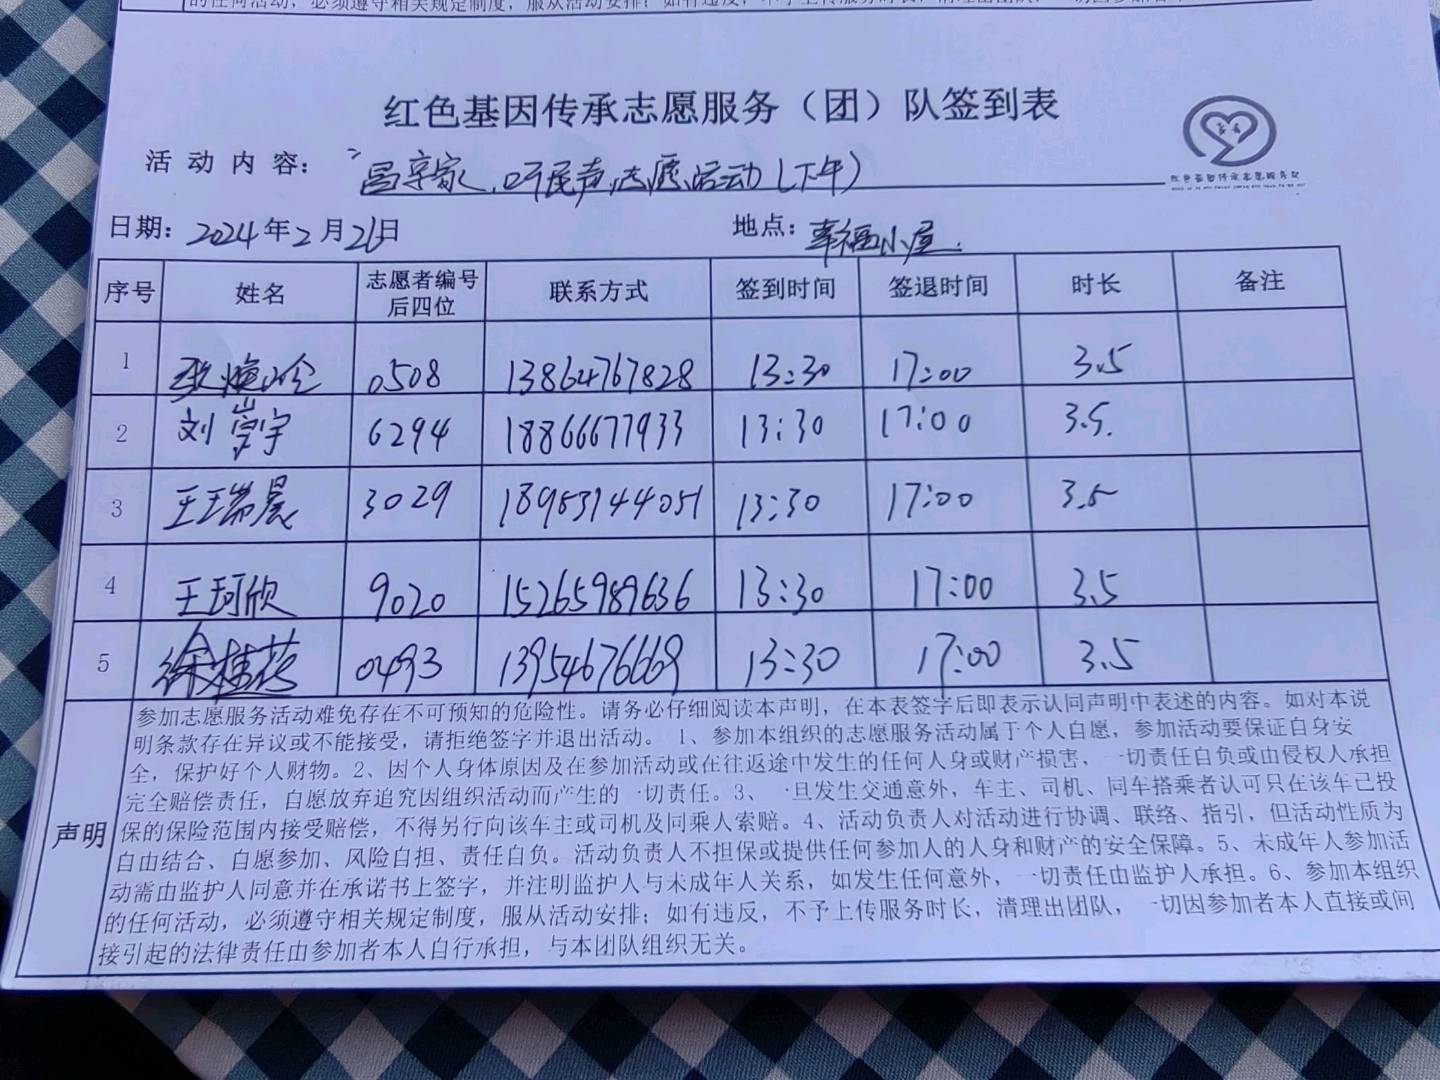 的任何活动，必须遵守相关规定制度，服从活动安排；如有违反，不予上传服务时长，清理出团队，一切因参加者本
红色基因传承志愿服务（团）队签到表
活动内容： 昌享家、听民声，志愿活动（下午）
日期：2024年2月26日 地点：幸福小屋
序号 姓名 志愿者编号后四位 联系方式 签到时间 签退时间 时长 备注
1 0508 13864767828 13:30 17:00 3.5
2 刘嵩宇 6294 18866677933 13:30 17:00 3.5
3 王瑞晨 3029 18953144051 13:30 17:00 3.5
4 王珂欣 9020 15265989636 13:30 17:00 3.5
5 徐桂花 0493 13954676669 13:30 17:00 3.5
声明
参加志愿服务活动难免存在不可预知的危险性。请务必仔细阅读本声明，在本表签字后即表示认同声明中表述的内容。如对本说
明条款存在异议或不能接受，请拒绝签字并退出活动。 1、参加本组织的志愿服务活动属于个人自愿，参加活动要保证自身安
全，保护好个人财物。2、因个人身体原因及在参加活动或在往返途中发生的任何人身或财产损害，一切责任自负或由侵权人承担
完全赔偿责任，自愿放弃追究因组织活动而产生的一切责任。3、一旦发生交通意外，车主、司机、同车搭乘者认可只在该车已投
保的保险范围内接受赔偿，不得另行向该车主或司机及同乘人索赔。4、活动负责人对活动进行协调、联络、指引，但活动性质为
自由结合、自愿参加、风险自担、责任自负。活动负责人不担保或提供任何参加人的人身和财产的安全保障。5、未成年人参加活
动需由监护人同意并在承诺书上签字，并注明监护人与未成年人关系，如发生任何意外，一切责任由监护人承担。6、参加本组织
的任何活动，必须遵守相关规定制度，服从活动安排；如有违反，不予上传服务时长，清理出团队，一切因参加者本人直接或间
接引起的法律责任由参加者本人自行承担，与本团队组织无关。